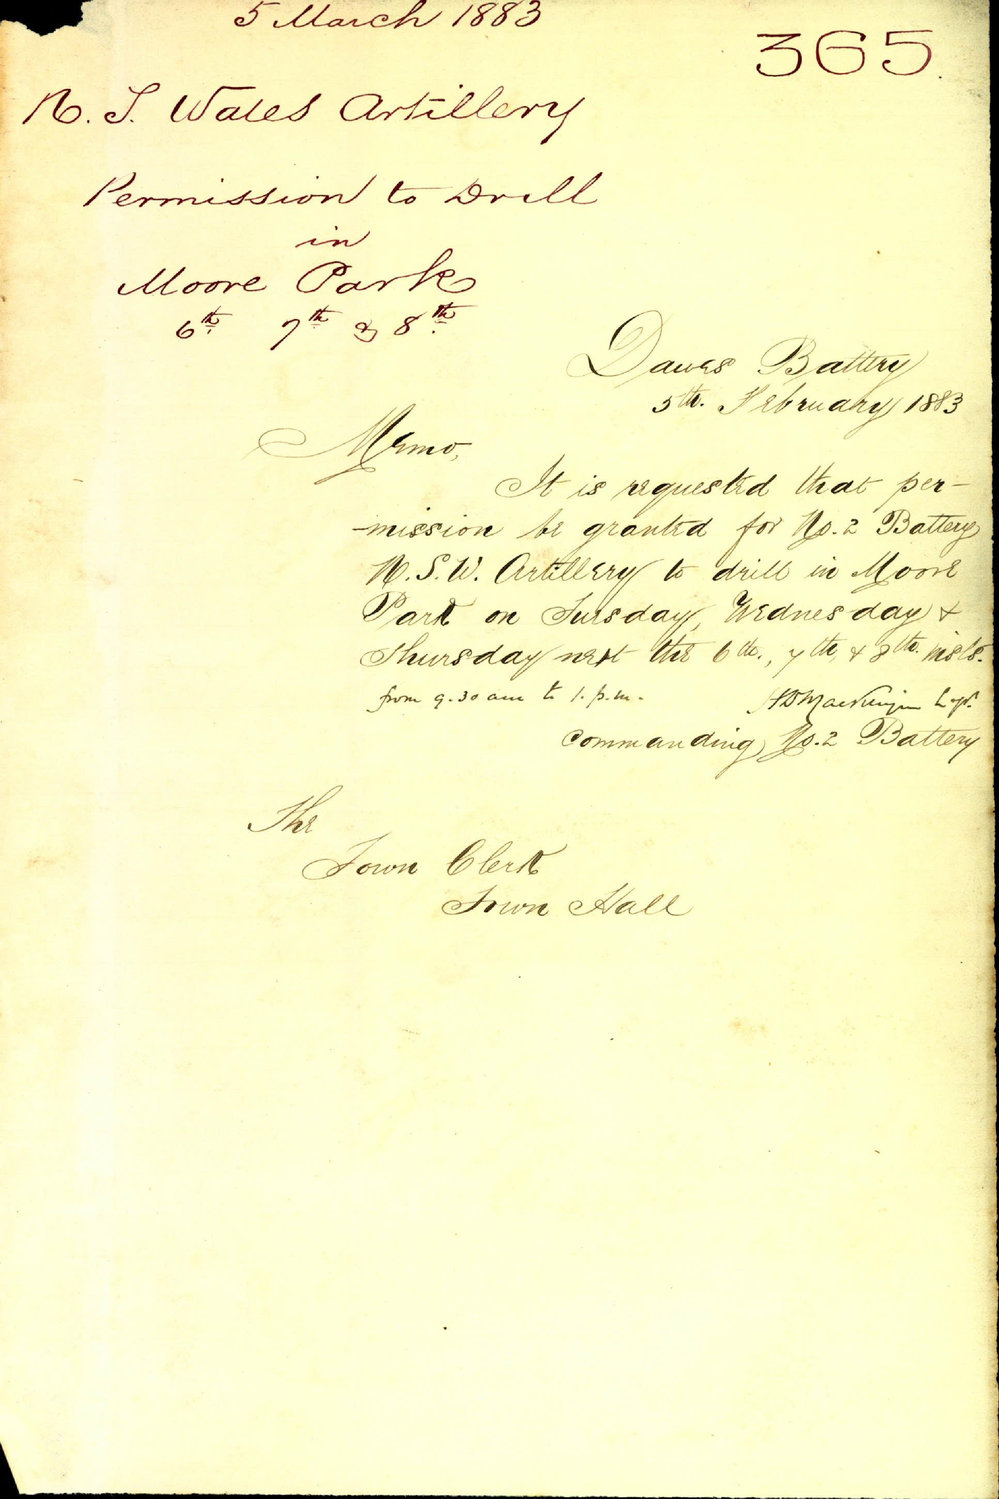 5 March 1883
365
N. S. Wales Artillery
Permission to Drill
in
Moore Park
6th 7th & 8th
Dawes Battery
5th. February 1883
Memo,
It is requested that per-
-mission be granted for No. 2 Battery
N. S. W. Artillery to drill in Moore
Park on Tuesday, Wednesday &
Thursday next the 6th., 7th, & 8th. insts.
from 9.30 am to 1. p.m.
Commanding No. 2 Battery
The
Town Clerk
Town Hall